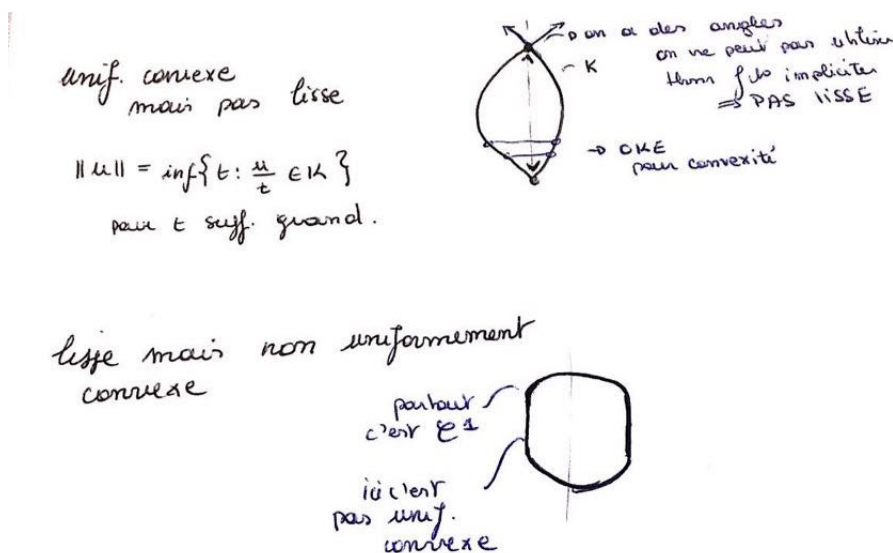 unif. convexe
mais pas lisse
‖u‖ = inf{t : u/t ∈ K}
pour t suff. grand.
on a des angles
on ne peut pas utiliser
thm f° implicites
⇒ PAS LISSE
K
→ OKE
pour convexité
lisse mais non uniformement
convexe
partout
c'est C¹
ici c'est
pas unif.
convexe